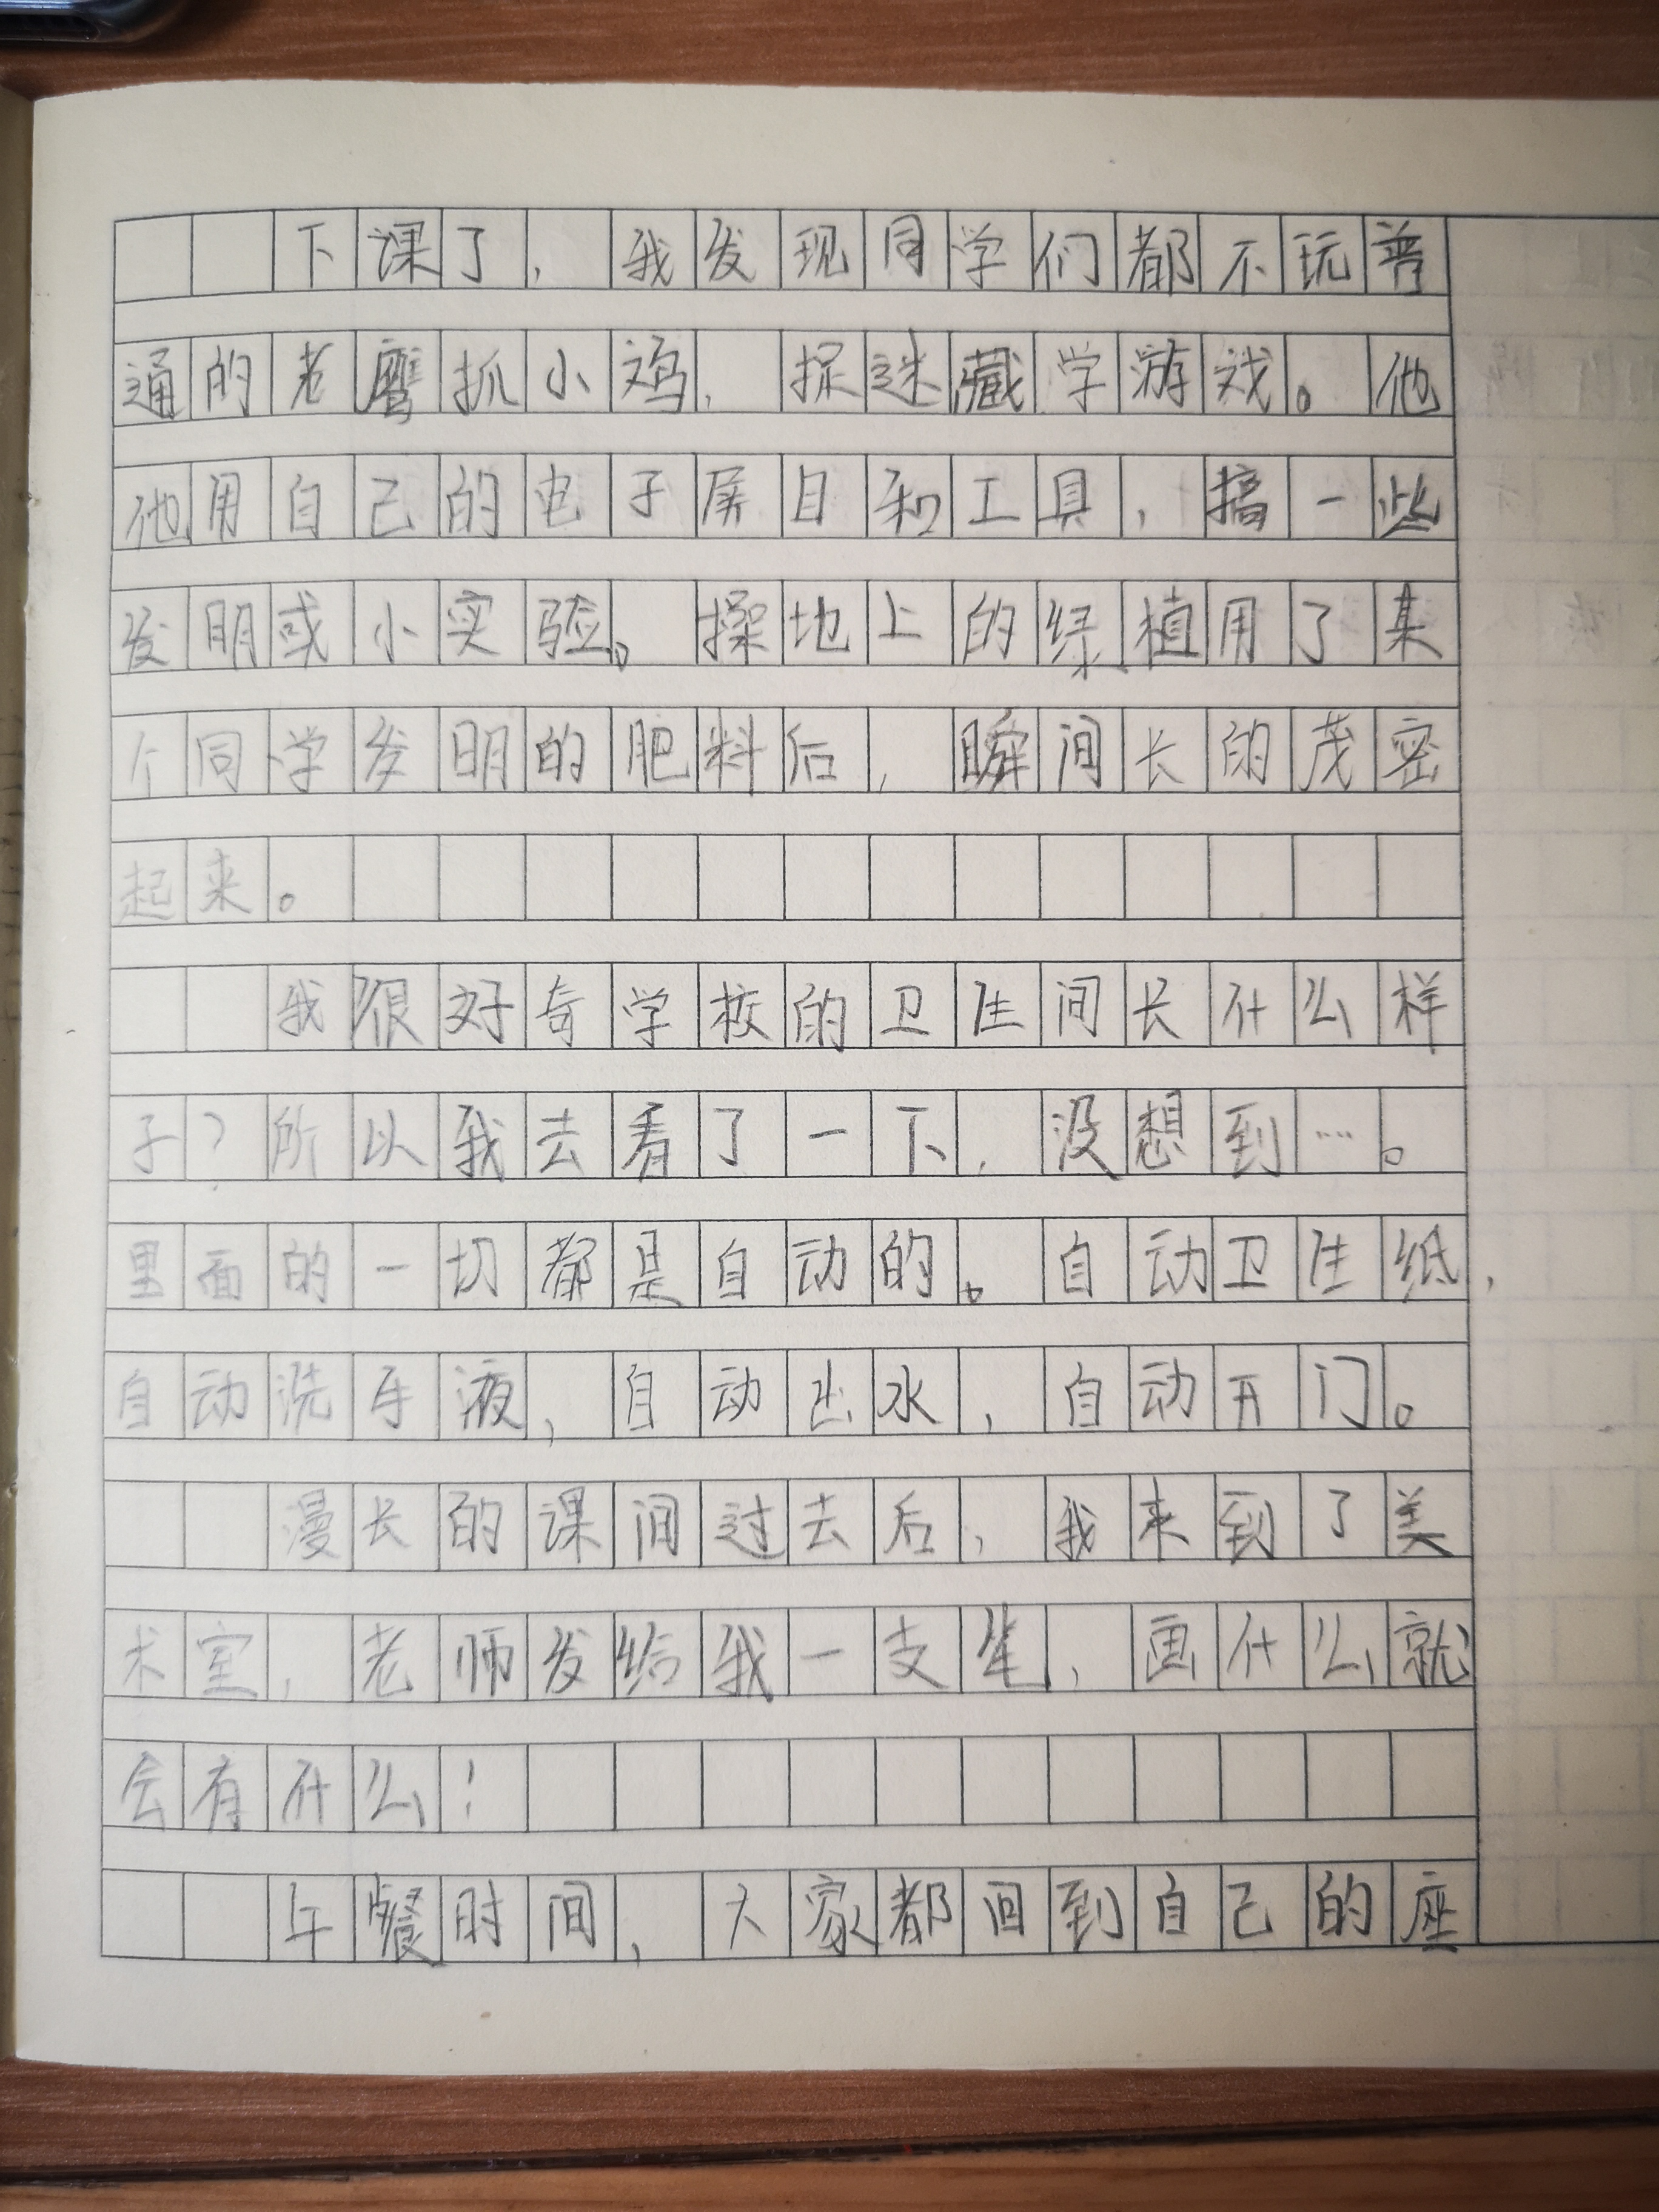 下课了，我发现同学们都不玩普
通的老鹰抓小鸡，探迷藏学游戏。他
他用自己的电子屏目和工具，搞一些
发明或小实验。操地上的绿植用了某
个同学发明的肥料后，瞬间长的茂密
起来。
我很好奇学校的卫生间长什么样
子？所以我去看了一下，没想到…。
里面的一切都是自动的。自动卫生纸，
自动洗手液，自动出水，自动开门。
漫长的课间过去后，我来到了美
术室，老师发给我一支笔，画什么就
会有什么！
午餐时间，大家都回到自己的座